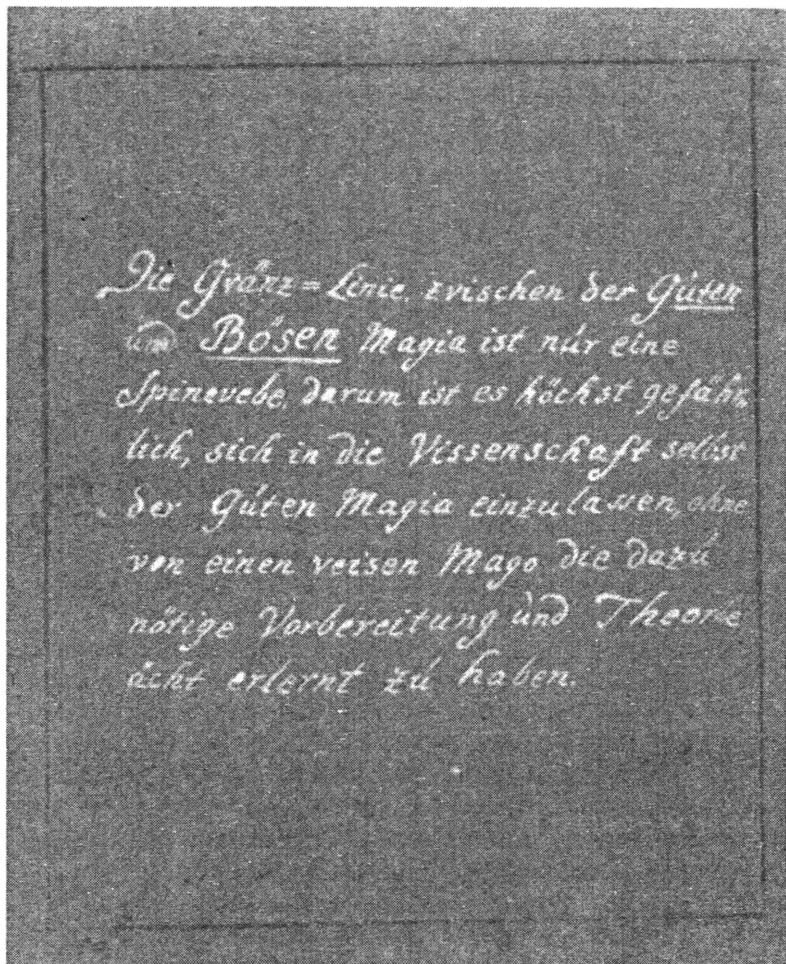 Die Gränz=Linie. zvischen der Gúten
únd Bösen Magia ist núr eine
Spinevebe, darum ist es höchst gefähr,
lich, sich in die Vissenschaft selbst
der Gúten Magia einzulassen, ohne
von einen veisen Mago die dazú
nötige Vorbereitung únd Theorie
ächt erlernt zú haben.